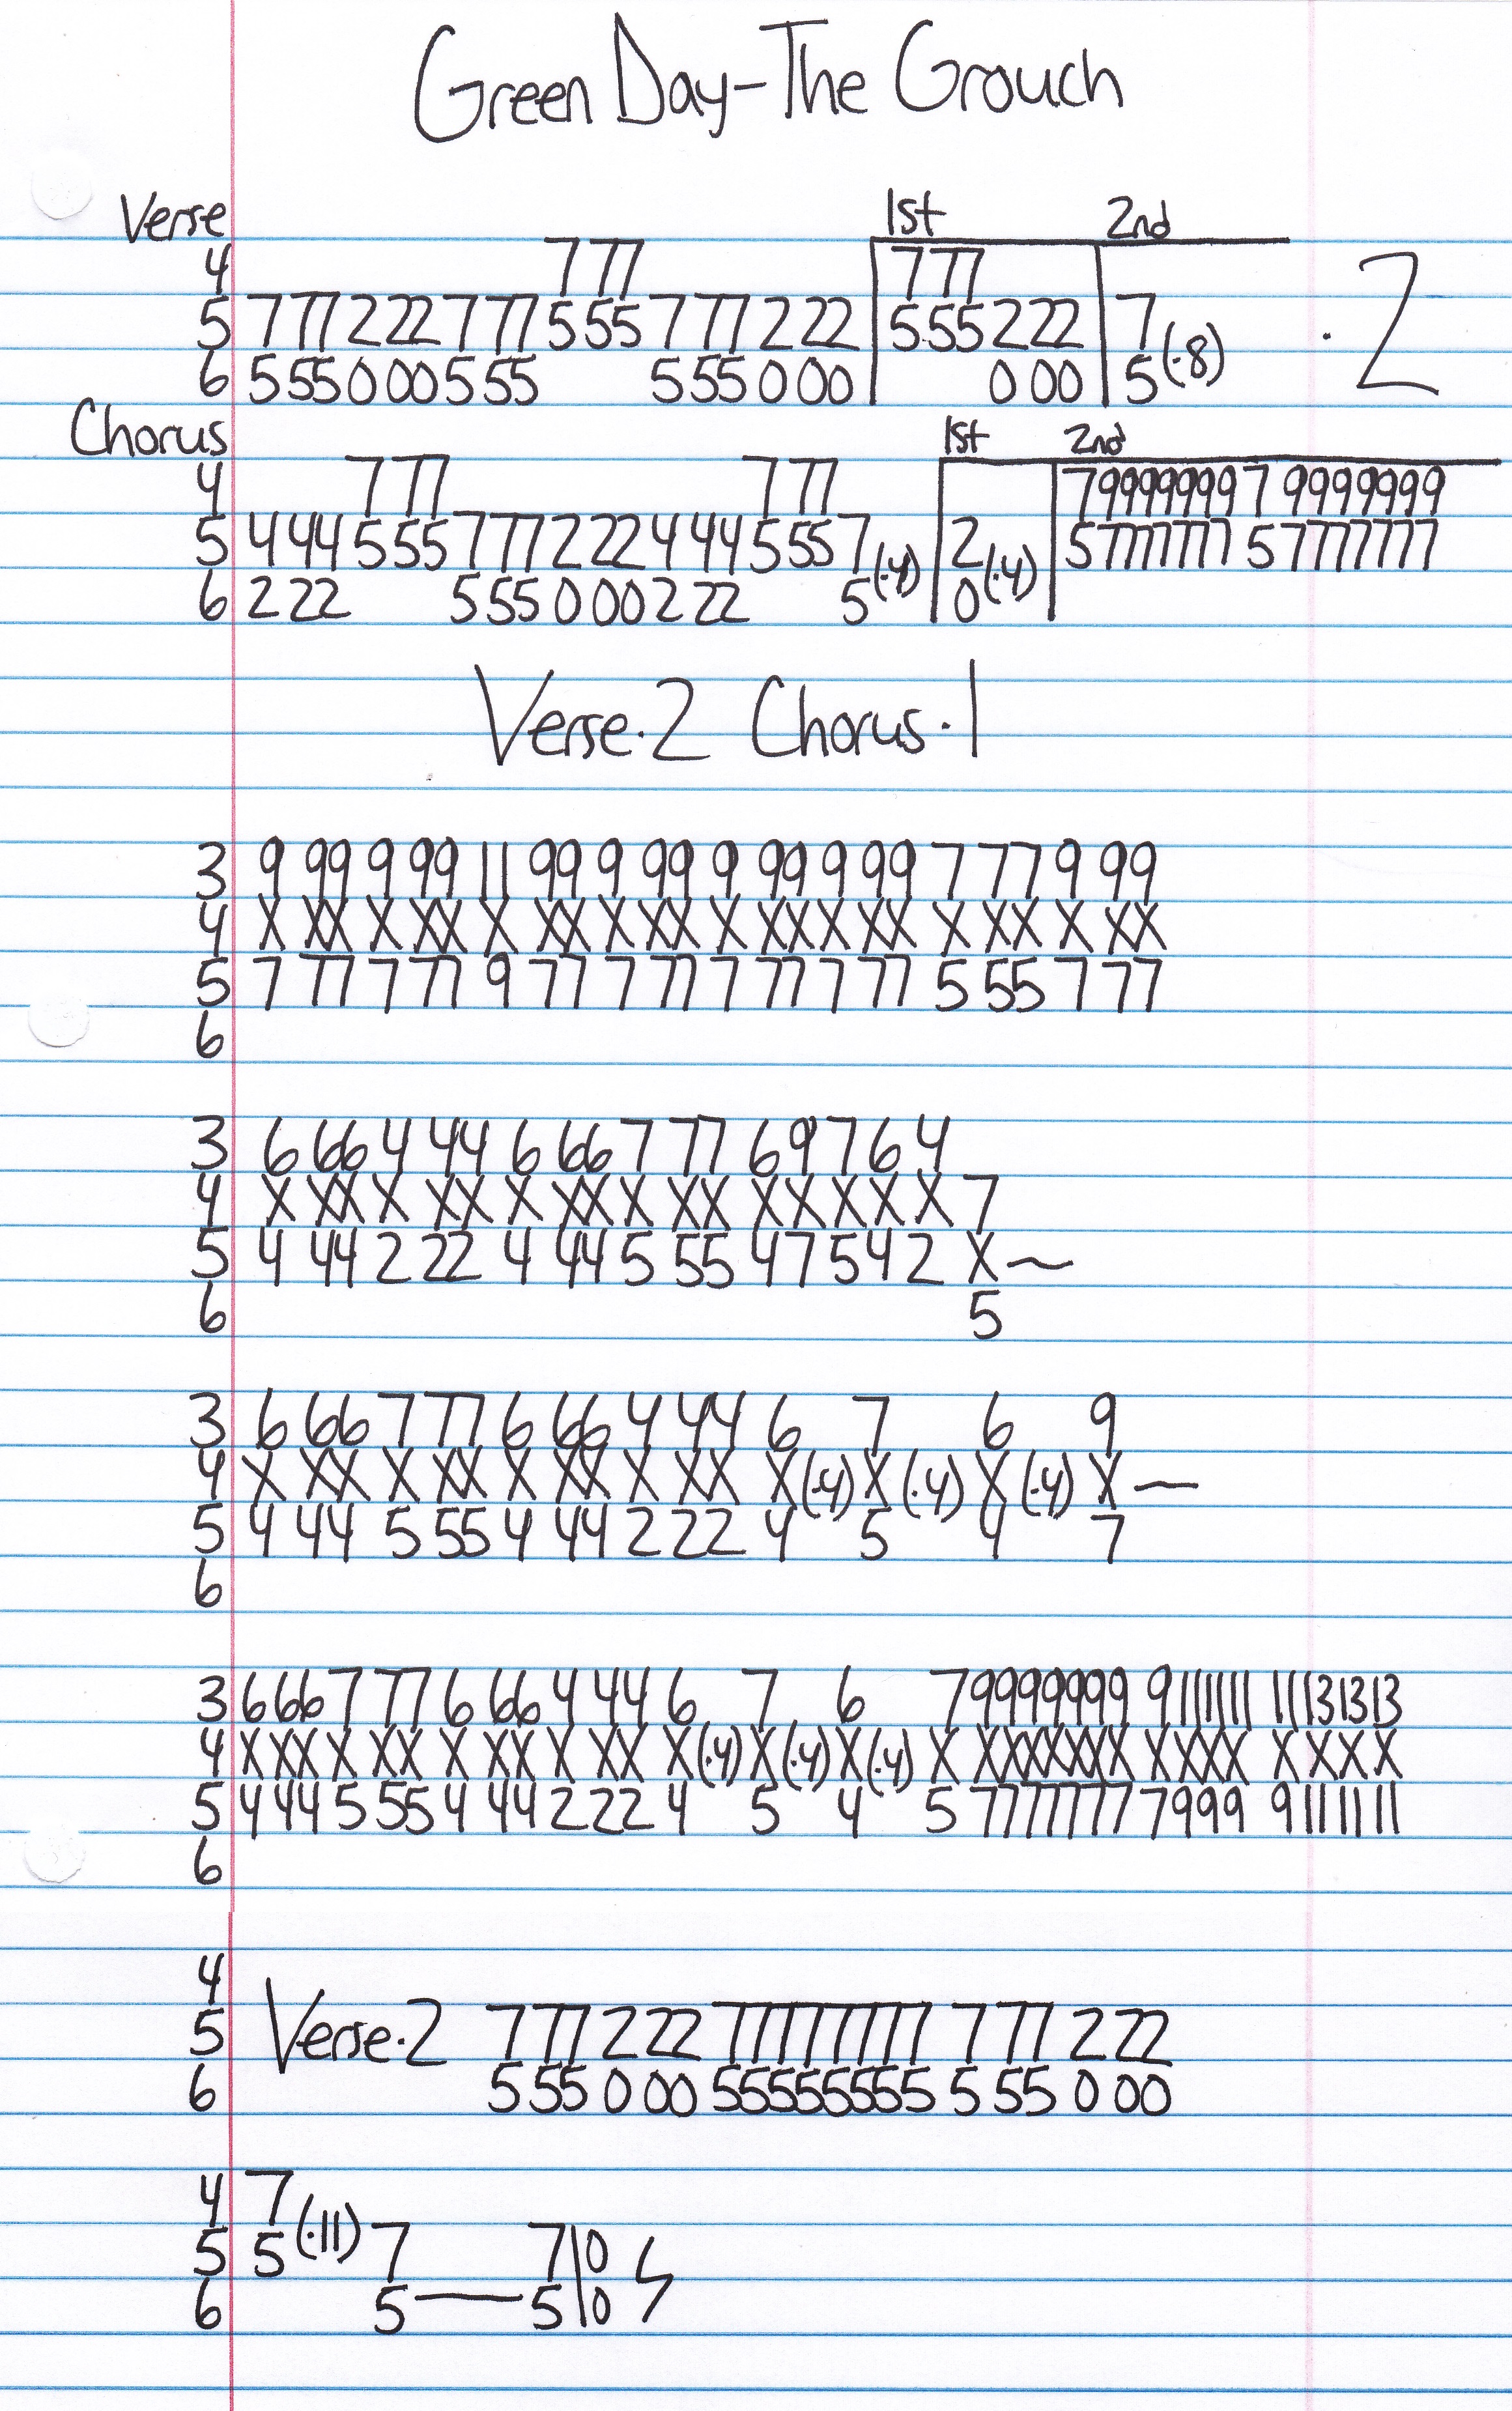 Green Day-The Grouch
Verse 1st 2nd
4 7 77 7 77
5 7 77 2 22 7 77 5 55 7 77 2 22 5 55 2 22 7 (·8) · 2
6 5 55 0 00 5 55 5 55 0 00 0 00 5
Chorus 1st 2nd
4 7 77 7 77 79999999 7 9999999
5 4 44 5 55 7 77 2 22 4 44 5 55 7 (·4) 2 (·4) 5777777 57777777
6 2 22 5 55 0 00 2 22 5 0
Verse·2 Chorus·1
3 9 99 9 99 11 99 9 99 9 99 9 99 7 77 9 99
4 X XX X XX X XX X XX X XX X XX X XX X XX
5 7 77 7 77 9 77 7 77 7 77 7 77 5 55 7 77
6
3 6 66 4 44 6 66 7 77 6 9 7 6 4
4 X XX X XX X XX X XX X X X X X 7
5 4 44 2 22 4 44 5 55 4 7 5 4 2 X ~
6 5
3 6 66 7 77 6 66 4 44 6 7 6 9
4 X XX X XX X XX X XX X (·4) X (·4) X (·4) X —
5 4 44 5 55 4 44 2 22 4 5 4 7
6
3 6 66 7 77 6 66 4 44 6 7 6 7 9999999 9 111111 11 131313
4 X XX X XX X XX X XX X (·4) X (·4) X (·4) X XXXXXXX XXXX X X X X
5 4 44 5 55 4 44 2 22 4 5 4 5 7777777 7999 9 111111
6
4
5 Verse·2 7 77 2 22 77777777 7 77 2 22
6 5 55 0 00 55555555 5 55 0 00
4 7
5 5 (·11) 7 7\0
6 5 — 5\0